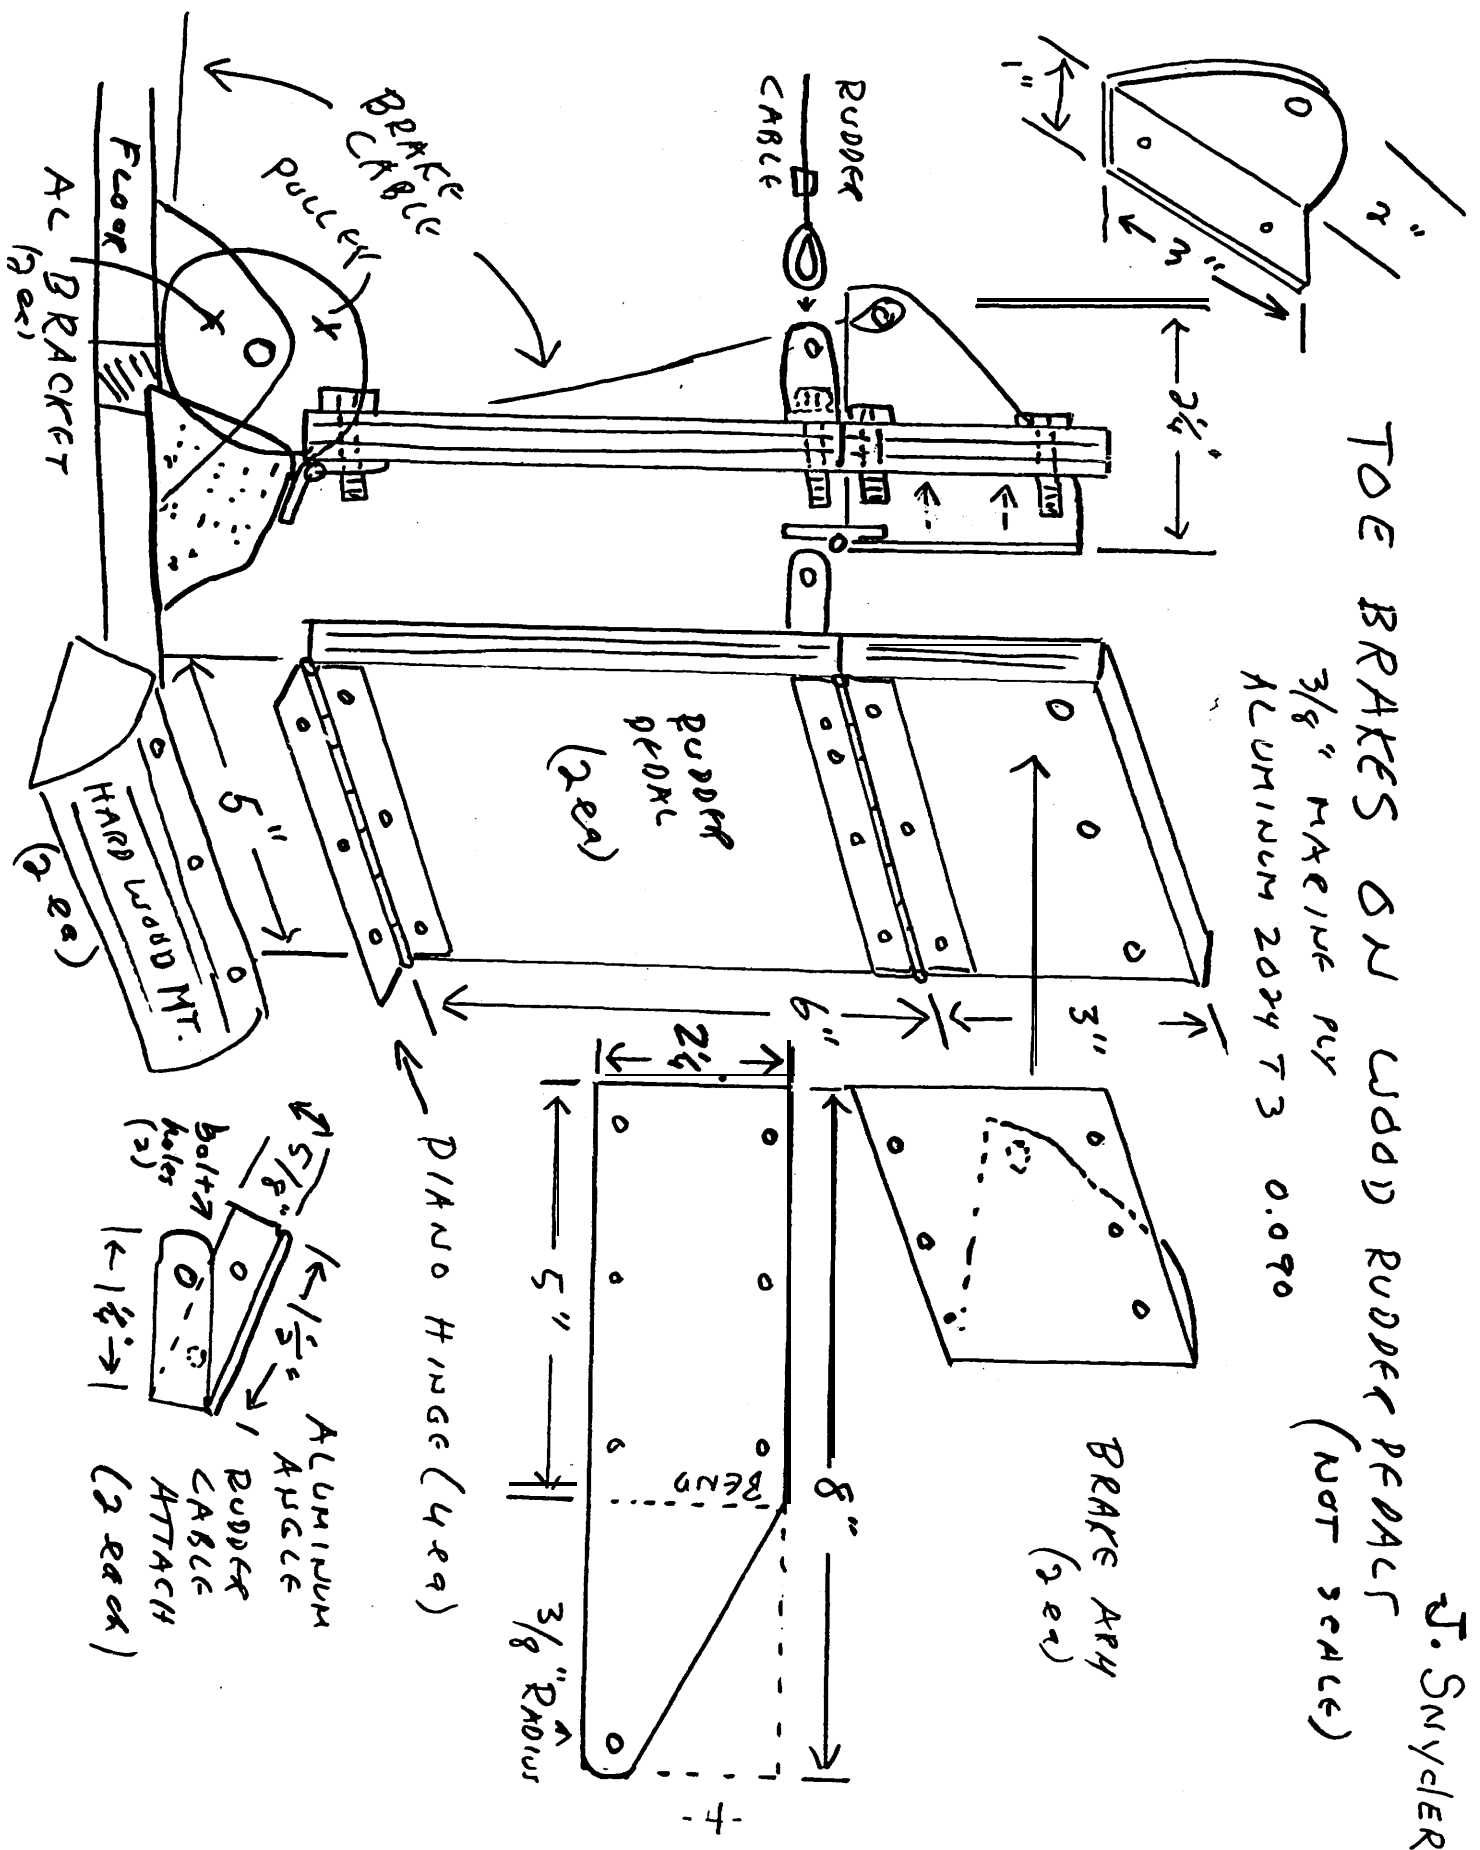 J. SNYdER
TOE BRAKES ON WOOD RUDDER PEDALS
(NOT SCALE)
3/8" MARINE PLY
ALUMINUM 2024 T3 0.090
1"
2"
3"
RUDDER
CABLE
2¼"
BRAKE
CABLE
PULLEY
FLOOR
AL BRACKET
(2 ea)
RUDDER
PEDAL
(2 ea)
5"
HARD WOOD MT.
(2 ea)
6"
3"
BRAKE ARM
(2 ea)
2¼
8"
5"
BEND
3/8" RADIUS
PIANO HINGE (4 ea)
5/8"
bolt
holes
(2)
1½"
1¼"
ALUMINUM
ANGLE
RUDDER
CABLE
ATTACH
(2 each)
-4-